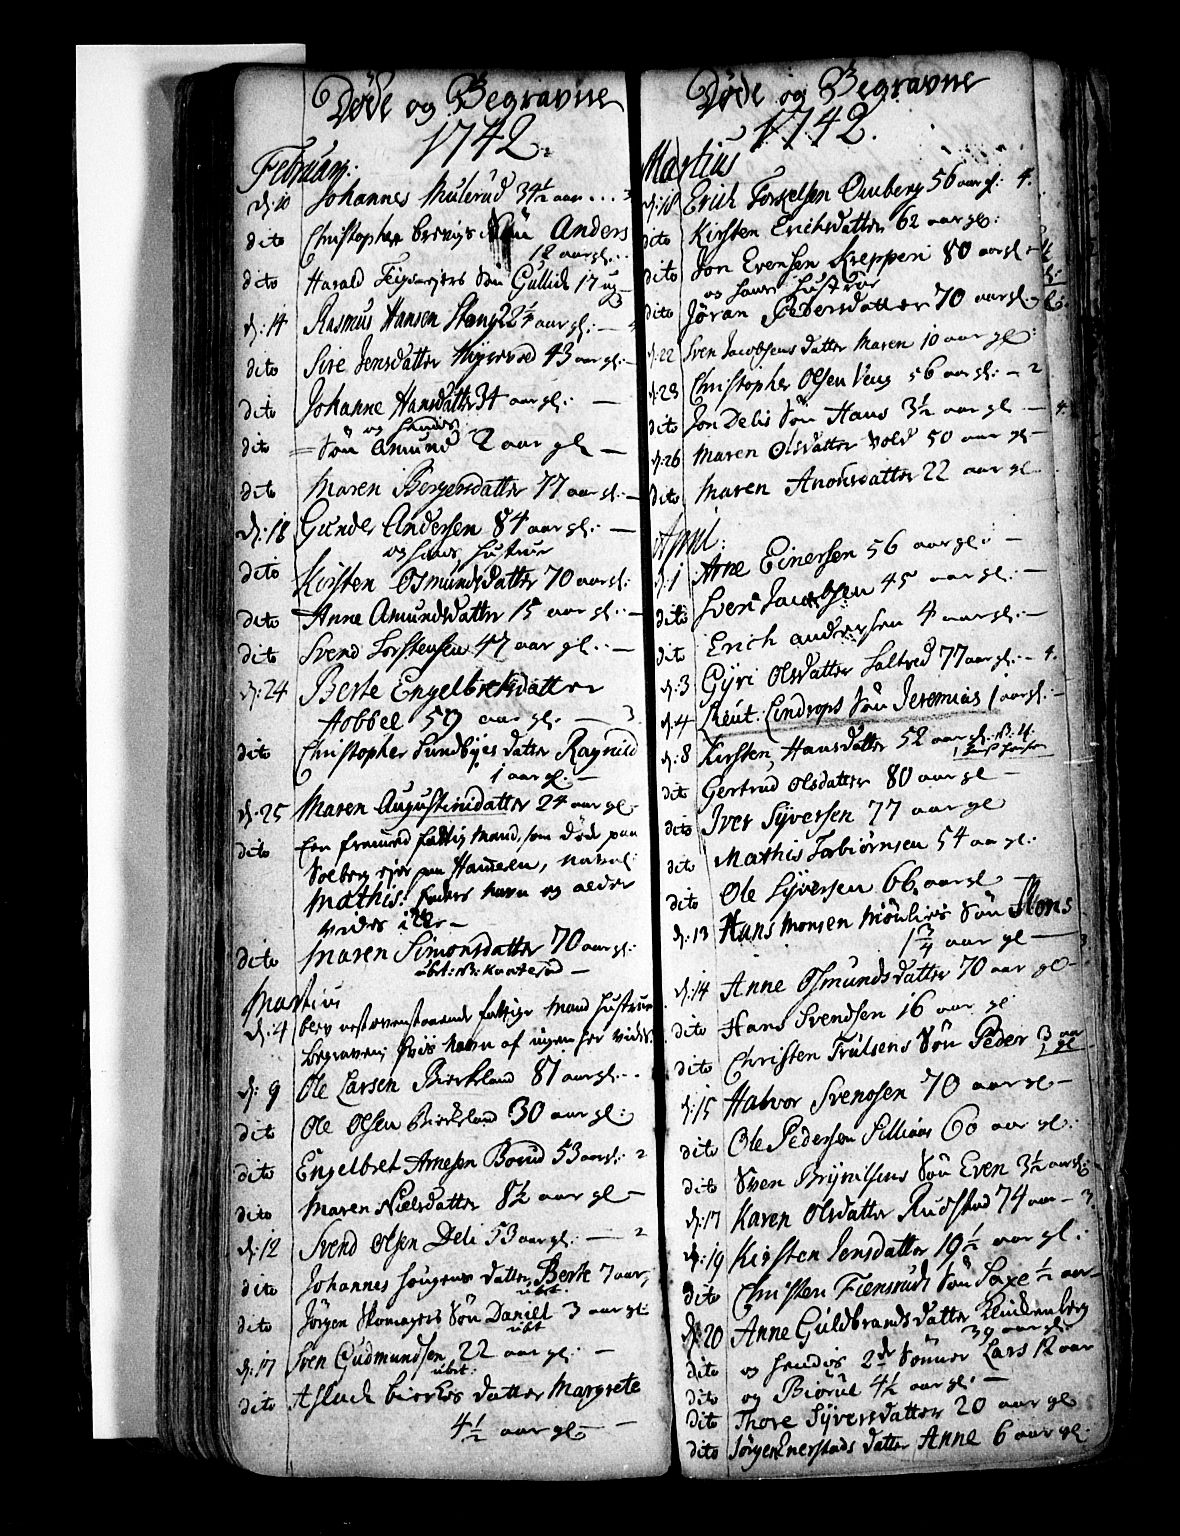 Døde og Begravne
1742.
Februarij:
d: 10 Johannes Mulerud 34½ aar... 3
dito Christopher Søn Anders
12 aar gl...
dito Harald Søn Gullich 17 ug
3
d: 14 Rasmus Hansen Stang 22¼ aar gl: — 4
dito Sire Jensdatter 43 aar gl: —
dito Johanne Hansdatter 34 aar gl: —
og hendis
dito = Søn Amund 2 aar gl —
dito Maren Bergersdatter 77 aar gl: —
d: 18 Gunder Andersen 84 aar gl: —
og hans hustrue
dito Kirsten Osmundsdatter 70 aar gl:
dito Anne Amundsdatter 15 aar gl: —
dito Svend Torstensen 47 aar gl: —
d: 24 Berte Engelbretsdatter
Hobbel 59 aar gl: — 3
dito Christopher Sundbyes datter Raghild
1 aar gl: —
d: 25 Maren Augustinidatter 24 aar gl:
dito Een fremmed fattig Mand, som døde paa
Solberg ejer paa Hameren, nafnl:
Mathis: faders navn og alder
vides icke —
dito Maren Simonsdatter 70 aar gl:
ubt: Kaaterød —
Martius
d: 4 blev fattige Mand Hustrue
begraven; hvis navn af ingen her vides.
d: 9 Ole Larsen Bierkland 87 aar gl: .
dito Ole Olsen Bierkeland 30 aar gl:
dito Engelbret Arnesen Borud 53 aar gl: 2
dito Maren Nielsdatter 8½ aar gl —
d: 12 Svend Olsen Deli 53 aar gl: — 2
dito Johannes datter Berte 7 aar,
ubt.
dito Jørgen Skomagers Søn Daniel 3 aar gl:
ubt
d: 17 Sven Gudmundsen 22 aar gl: —
ubt:
dito Aslach datter Margrete
4½ aar gl — —
Døde og Begravne
1742.
Martius
d: 18 Erich Torgelsen 56 aar gl: 4.
dito Kirsten Erichsdatter 62 aar gl:
dito Jon Evensen Kreppen 80 aar gl
og hans hustrue
dito Jøran Pedersdatter 70 aar gl:
d: 22 Sven Jacobsens datter Maren 10 aar gl:
d: 23 Christopher Olsen Veng 56 aar gl: — 2
dito Jon Delis Søn Hans 3½ aar gl — 4:
d: 26 Maren Olsdatter Vold 50 aar gl —
dito Maren Anonsdatter 22 aar gl
April:
d: 1 Arne Einersen 56 aar gl: —
dito Sven Jacobsen 45 aar gl: —
dito Erich andersen 4 aar gl: —
d: 3 Gyri Olsdatter Saltred 77 aar gl: — 4.
d: 4 Leut: Lindrops Søn Jeremias 1 aar gl: —
d: 8 Kirsten Hansdatter 52 aar gl:
dito Gertrud Olsdatter 80 aar gl —
dito Iver Syversen 77 aar gl
dito Mathis Torbiørnsen 54 aa gl:
dito Ole Syversen 66 aar gl —
d: 13 Hans Monsen Søn Mons
1¾ aar gl — 3
d: 14 Anne Osmundsdatter 70 aar gl —
dito Hans Svendsen 16 aar gl
dito Christen Trulsens Søn Peder 3 aar
gl
d: 15 Halvor Svendsen 70 aar gl —
dito Ole Pedersen Silliaas 60 aar gl:
dito Sven Brynilsens Søn Even 3½ aar gl:
d: 17 Karen Olsdatter Rudstad 74 aar — 3.
d: 19 Kirsten Jensdatter 19½ aar gl:
dito Christen Fiensruds Søn Saxe ½ aar —
d: 20 Anne Guldbrandsdatter
39 aar gl:
dito og hendis 2de Sønner Lars 12 aar
dito og Biørul 4½ aar gl: —
dito Thore Syversdatter 20 aar gl
dito Jørgen Enerstads datter Anne 6 aar gl: